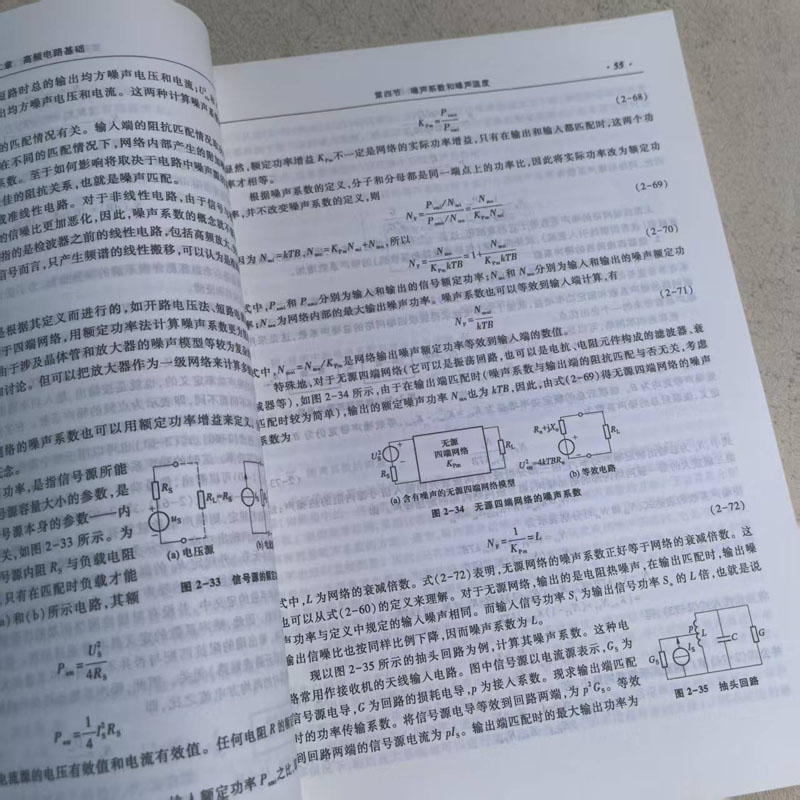 章 高频电路基础
短路时总的输出均方噪声电压和电流;
出均方噪声电压和电流。这两种计算噪声
的匹配情况有关。输入端的阻抗匹配情况
在不同的匹配情况下,网络内部产生的附加
系数。至于如何影响将取决于电路中噪声源
佳的阻抗关系,也就是噪声匹配。
或准线性电路。对于非线性电路,由于信号
的信噪比更加恶化,因此,噪声系数的概念就
指的是检波器之前的线性电路,包括高频放大、
信号而言,只产生频谱的线性搬移,可以认为是
是根据其定义而进行的,如开路电压法、短路电
于四端网络,用额定功率法计算噪声系数更为
由于涉及晶体管和放大器的噪声模型等较为复杂
和讨论。但可以把放大器作为一级网络来计算多
网络的噪声系数也可以用额定功率增益来定义,
概念。
功率,是指信号源所能
号源容量大小的参数,是
号源本身的参数——内
关,如图 2-33 所示。为
号源内阻 R_S 与负载电阻
只有在匹配时负载才能
a)和(b)所示电路,其额
R_S
u_S
R_L=R_S
(a) 电压源
图 2-33 信号源的额定
P_am=U_S²/4R_S
P_am=1/4 I_S²R_S
电流源的电压有效值和电流有效值。任何电阻 R 的
输入额定功率 P_ami 之比,
第四节 噪声系数和噪声温度
· 55 ·
K_Pm=P_smo/P_smi (2-68)
显然,额定功率增益 K_Pm 不一定是网络的实际功率增益,只有在输出和输入都匹配时,这两个功
率才相等。
根据噪声系数的定义,分子和分母都是同一端点上的功率比,因此将实际功率改为额定功
率,并不改变噪声系数的定义,则
N_F=(P_smi/N_mi)/(P_smo/N_mo)=N_mo/(K_PmN_mi) (2-69)
因为 N_mi=kTB,N_mo=K_PmN_mi+N_mn,所以
N_F=N_mo/(K_PmkTB)=1+N_mn/(K_PmkTB) (2-70)
式中,P_smi 和 P_smo 分别为输入和输出的信号额定功率;N_mi 和 N_mo 分别为输入和输出的噪声额定功
率;N_mn 为网络内部的最大输出噪声功率。噪声系数也可以等效到输入端计算,有
N_F=N_moi/kTB (2-71)
式中,N_moi=N_mo/K_Pm 是网络输出噪声额定功率等效到输入端的数值。
特殊地,对于无源四端网络(它可以是振荡回路,也可以是电抗、电阻元件构成的滤波器、衰
减器等),如图 2-34 所示,由于在输出端匹配时(噪声系数与输出端的阻抗匹配与否无关,考虑
匹配时较为简单),输出的额定噪声功率 N_mo 也为 kTB,因此,由式(2-69)得无源四端网络的噪声
系数为
无源
四端网络
K_Pm
R_S
R_L
R_o+jX_o
R_L
(a) 含有噪声的无源四端网络模型
(b) 等效电路
图 2-34 无源四端网络的噪声系数
N_F=1/K_Pm=L (2-72)
式中,L 为网络的衰减倍数。式(2-72)表明,无源网络的噪声系数正好等于网络的衰减倍数。这
也可以从式(2-60)的定义来理解。对于无源网络,输出的是电阻热噪声,在输出匹配时,输出噪
声功率与定义中规定的输入噪声相同。而输入信号功率 S_i 为输出信号功率 S_o 的 L 倍,也就是说
输出信噪比也按同样比例下降,因而噪声系数为 L。
现以图 2-35 所示的抽头回路为例,计算其噪声系数。这种电
路常用作接收机的天线输入电路。图中信号源以电流源表示,G_S 为
信号源电导,G 为回路的损耗电导,p 为接入系数。现求输出端匹配
时的功率传输系数。将信号源电导等效到回路两端,为 p²G_S。等效
到回路两端的信号源电流为 pI_S。输出端匹配时的最大输出功率为
G_S
I_S
L
C
G
图 2-35 抽头回路